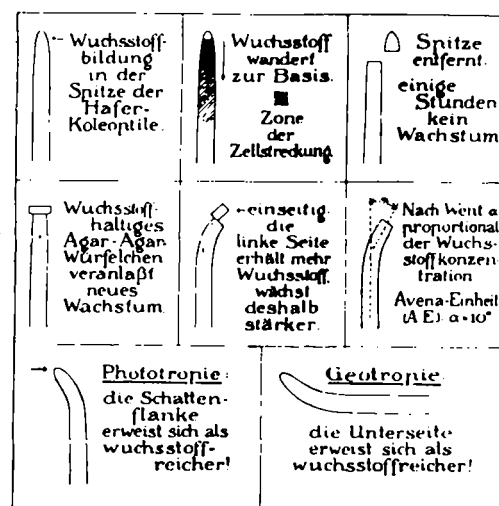 Wuchsstoff-
bildung
in der
Spitze der
Hafer-
Koleoptile.
Wuchsstoff
wandert
zur Basis.
Zone
der
Zellstreckung
Spitze
entfernt.
einige
Stunden
kein
Wachstum
Wuchsstoff-
haltiges
Agar-Agar-
Würfelchen
veranlaßt
neues
Wachstum.
einseitig.
die
linke Seite
erhält mehr
Wuchsstoff,
wächst
deshalb
stärker.
Nach Went α
proportional
der Wuchs-
stoffkonzen-
tration
Avena-Einheit
(A.E.) α=10°
Phototropie:
die Schatten-
flanke
erweist sich als
wuchsstoff-
reicher!
Geotropie
die Unterseite
erweist sich als
wuchsstoffreicher!